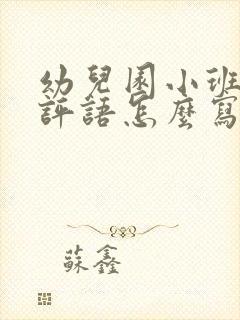 幼兒園小班
評語怎麼寫
蘇鑫